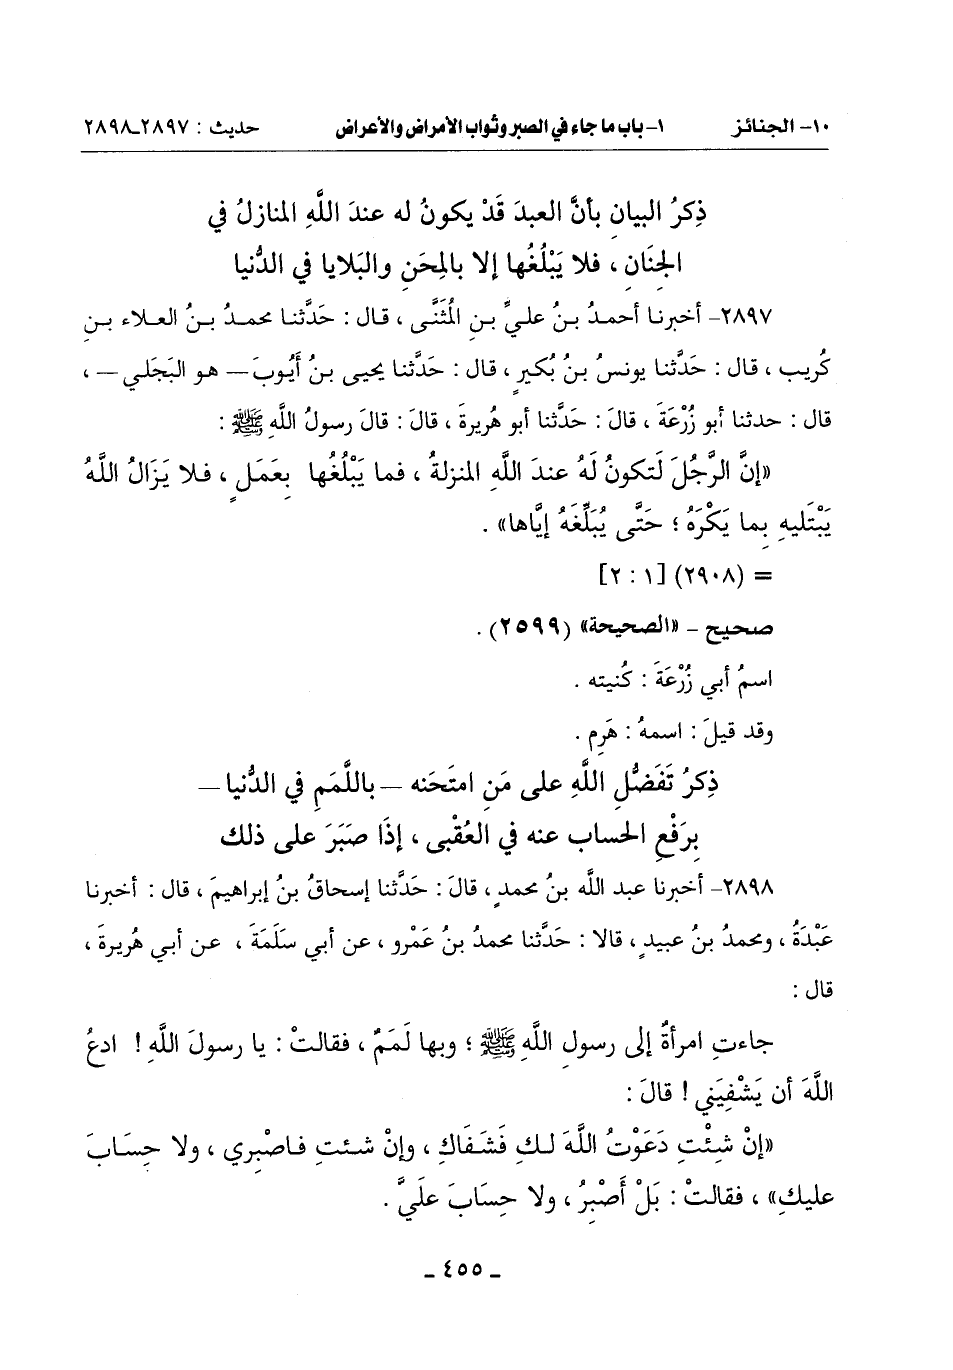 ١٠- الجنائز ١- باب ما جاء في الصبر وثواب الأمراض والأعراض حديث : ٢٨٩٧-٢٨٩٨
ذِكرُ البيانِ بأنَّ العبدَ قَدْ يكونُ له عندَ اللَّهِ المنازلُ في
الجِنَانِ ، فلا يَبْلُغُها إلا بالمِحَنِ والبَلايا في الدُّنيا
٢٨٩٧- أخبرنا أحمدُ بنُ عليِّ بنِ المُثَنَّى ، قال : حَدَّثنا محمدُ بنُ العلاء بنِ
كُريب ، قال : حَدَّثنا يونسُ بنُ بُكيرٍ ، قال : حَدَّثنا يحيى بنُ أَيُّوبَ – هو البَجَلي – ،
قال : حدثنا أبو زُرْعَةَ ، قالَ : حَدَّثنا أبو هُريرةَ ، قالَ : قالَ رسولُ اللَّهِ ﷺ :
«إنَّ الرَّجُلَ لَتكونُ لَهُ عندَ اللَّهِ المنزلةُ ، فما يَبْلُغُها بِعَمَلٍ ، فلا يَزَالُ اللَّهُ
يَبْتَليهِ بِما يَكْرَهُ ؛ حَتَّى يُبَلِّغَهُ إيَّاها» .
= (٢٩٠٨) [١ : ٢]
صحيح - «الصحيحة» (٢٥٩٩) .
اسمُ أبي زُرْعَةَ : كُنيته .
وقد قيلَ : اسمهُ : هَرِم .
ذِكرُ تَفَضُّلِ اللَّهِ على مَنِ امتَحَنه – باللَّمَمِ في الدُّنيا –
بِرَفْعِ الحساب عنه في العُقْبى ، إذَا صَبَرَ على ذلك
٢٨٩٨- أخبرنا عبد اللَّه بنُ محمدٍ ، قالَ : حَدَّثنا إسحاقُ بنُ إبراهيمَ ، قال : أخبرنا
عَبْدَةُ ، ومحمدُ بنُ عبيدٍ ، قالا : حَدَّثنا محمدُ بنُ عَمْرو ، عن أبي سَلَمَةَ ، عن أبي هُريرةَ ،
قال :
جاءتِ امرأةٌ إلى رسولِ اللَّهِ ﷺ ؛ وبها لَمَمٌ ، فقالتْ : يا رسولَ اللَّهِ ! ادعُ
اللَّهَ أن يَشْفِيَني ! قالَ :
«إنْ شِئْتِ دَعَوْتُ اللَّهَ لكِ فَشَفَاكِ ، وإنْ شئتِ فاصْبِري ، ولا حِسَابَ
عليكِ» ، فقالتْ : بَلْ أَصْبِرُ ، ولا حِسَابَ عَلَيَّ .
- ٤٥٥ -